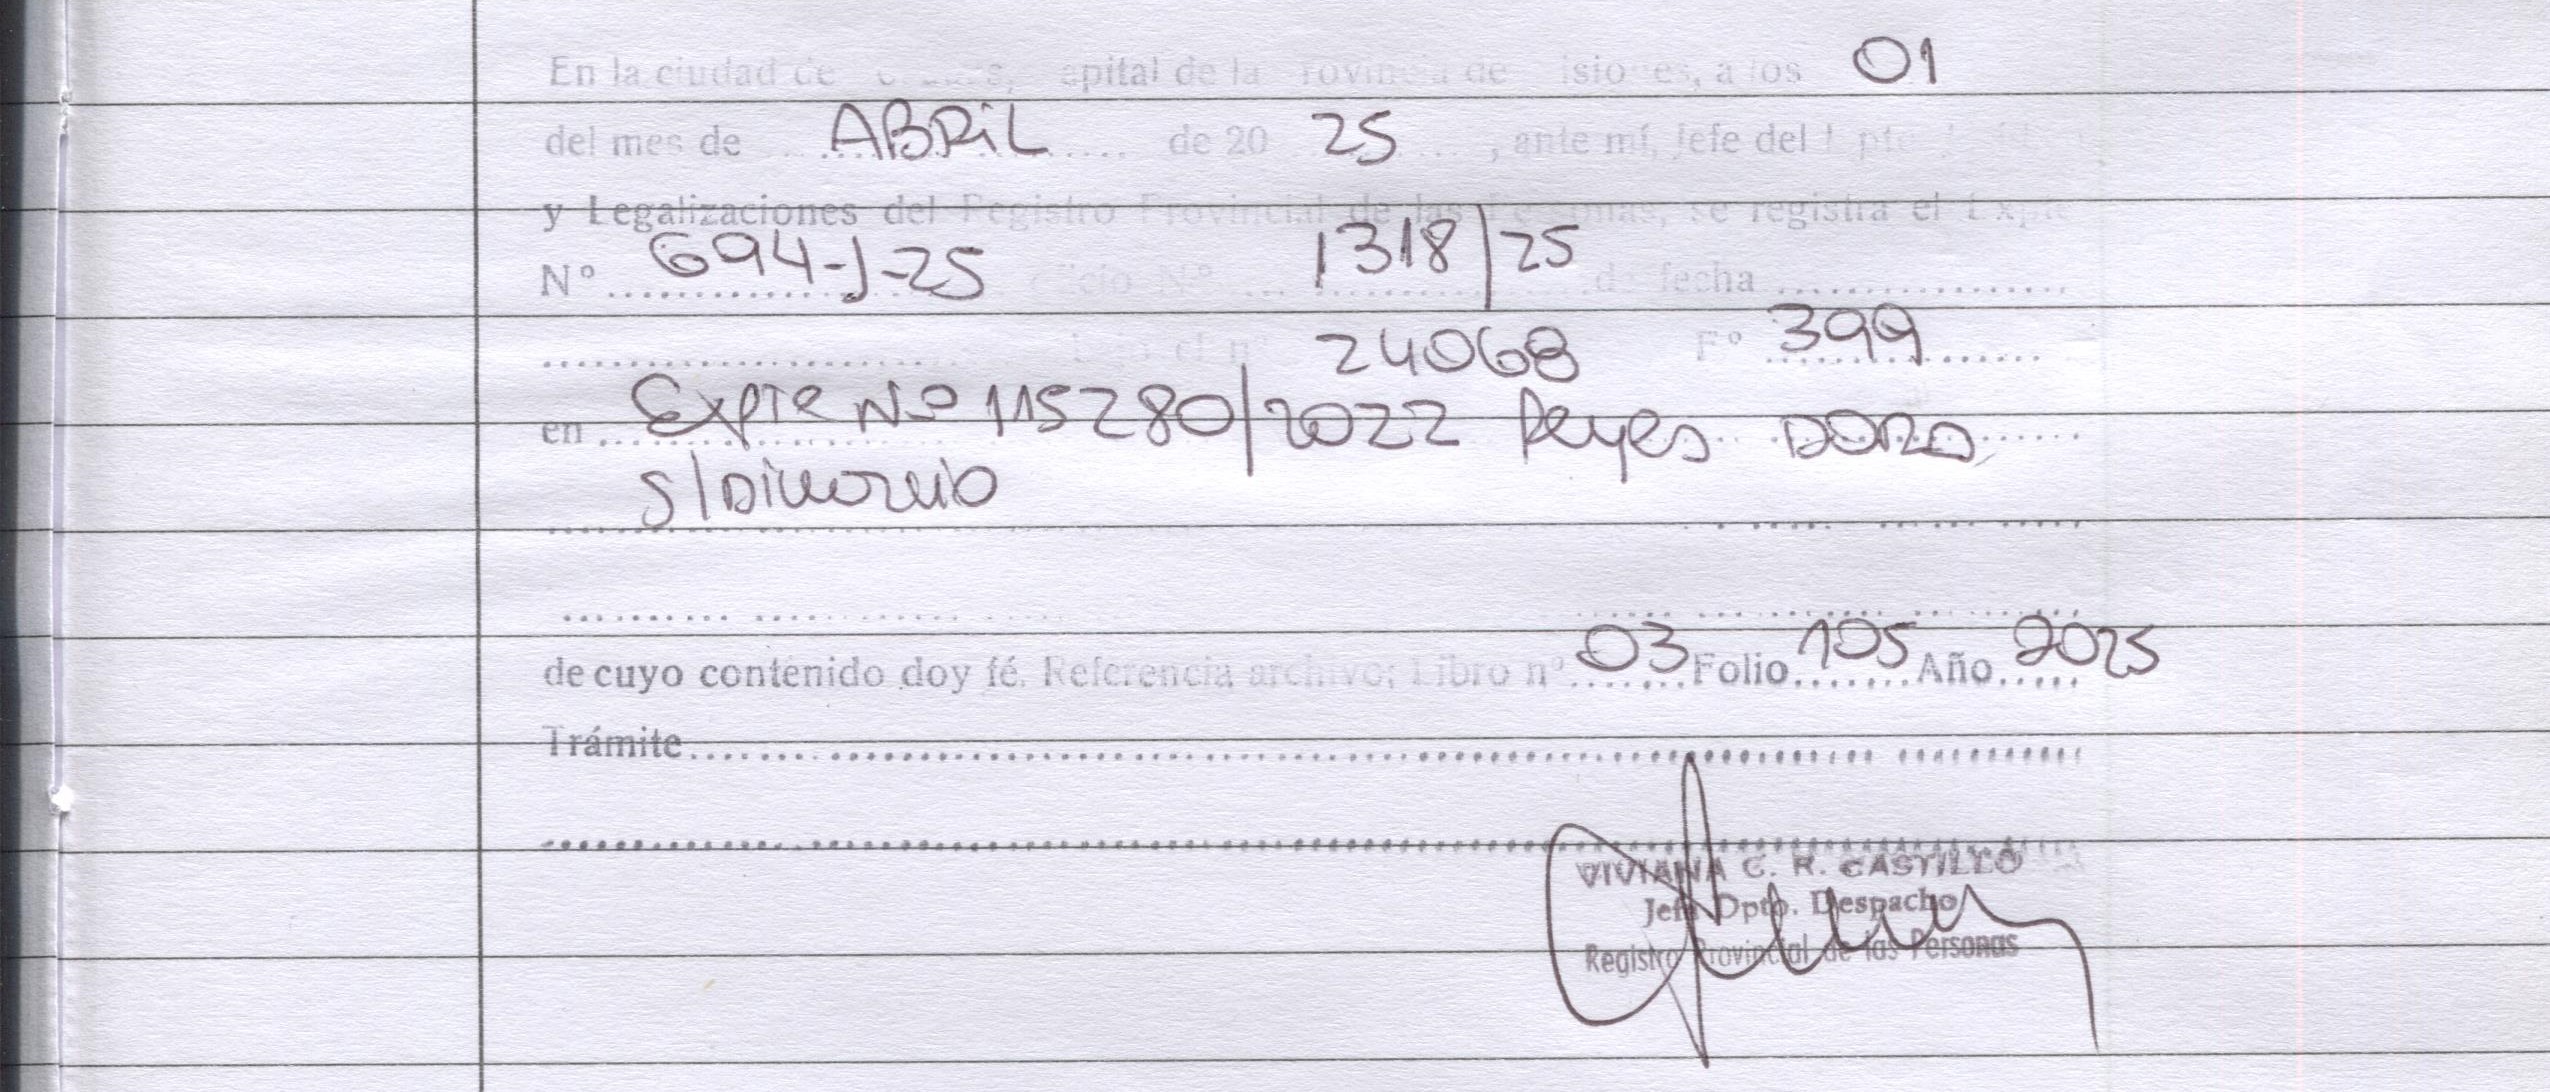 En la ciudad de apital de la rovincia de isiones, a los 01
del mes de ABRiL de 20 25, ante mí, Jefe del
y Legalizaciones del Registro Provincial de las Personas, se registra el Expte
Nº 694-J-25 icio Nº 1318/25 de fecha
24068 Fº 399
en Expte Nº 115280/2022 Reyes DORA
S/Divorcio
de cuyo contenido doy fé. Referencia archivo; Libro nº 03 Folio 105 Año 2025
Trámite
VIVIANA C. R. CASTILLO
Jefa Dpto. Despacho
Registro Provincial de las Personas